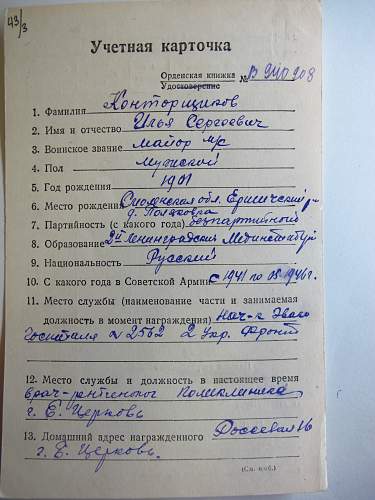 43/3
Учетная карточка
Орденская книжка
Удостоверение № В 940908
1. Фамилия Конторщиков
2. Имя и отчество Илья Сергеевич
3. Воинское звание майор м/с
4. Пол мужской
5. Год рождения 1901
6. Место рождения Смоленская обл. Ершичский р-н
д. Поляковка
7. Партийность (с какого года) безпартийный
8. Образование 2й Ленинградский Мединститут
9. Национальность Русский
10. С какого года в Советской Армии с 1941 по 08.1946г.
11. Место службы (наименование части и занимаемая
должность в момент награждения) Нач-к Эвако
Госпиталя № 2562 2 Укр. Фронт
12. Место службы и должность в настоящее время
врач-рентгенолог Поликлиника
г. Б. Церковь
13. Домашний адрес награжденного 16
г. Б. Церковь.
(См. н/об.)